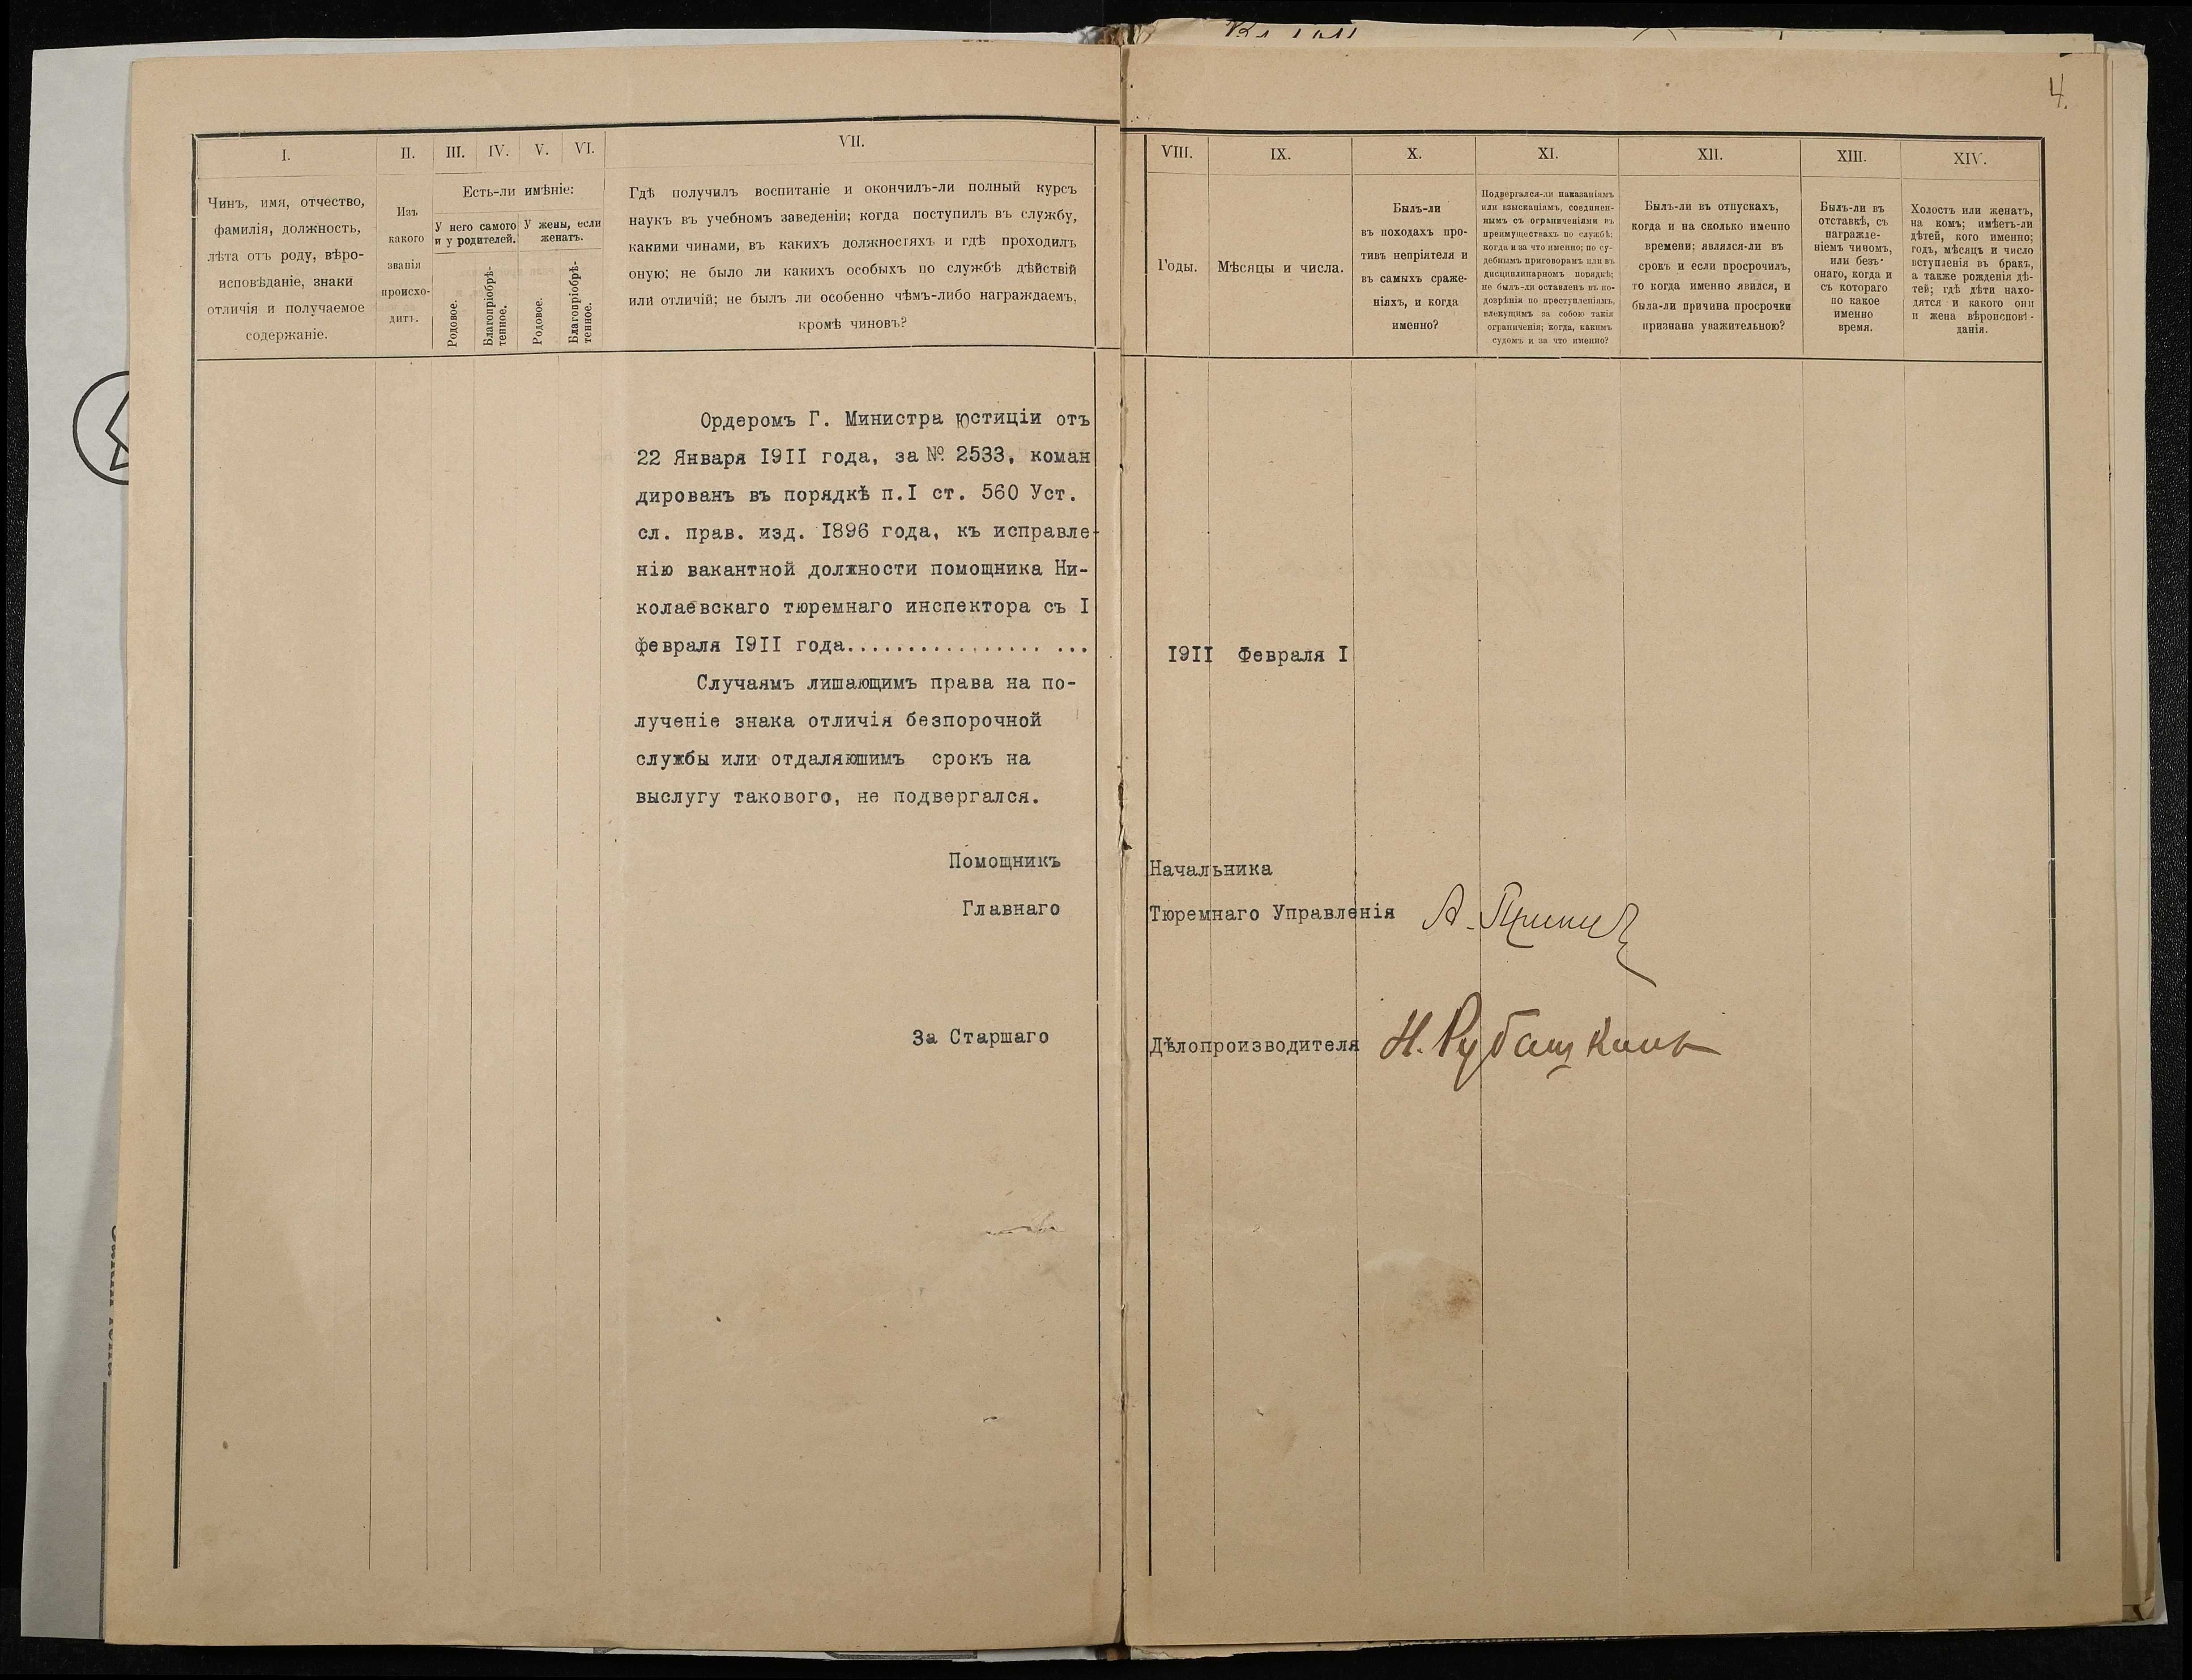 4.
I.
II.
III.
IV.
V.
VI.
VII.
Чинъ, имя, отчество,
фамилія, должность,
лѣта отъ роду, вѣро-
исповѣданіе, знаки
отличія и получаемое
содержаніе.
Изъ
какого
званія
происхо-
дитъ.
Есть-ли имѣніе:
У него самого
и у родителей.
У жены, если
женатъ.
Родовое.
Благопріобрѣ-
тенное.
Родовое.
Благопріобрѣ-
тенное.
Гдѣ получилъ воспитаніе и окончилъ-ли полный курсъ
наукъ въ учебномъ заведеніи; когда поступилъ въ службу,
какими чинами, въ какихъ должностяхъ и гдѣ проходилъ
оную; не было ли какихъ особыхъ по службѣ дѣйствій
или отличій; не былъ ли особенно чѣмъ-либо награждаемъ,
кромѣ чиновъ?
Ордеромъ Г. Министра Юстиціи отъ
22 Января I9II года, за № 2533, коман
дированъ въ порядкѣ п.I ст. 560 Уст.
сл. прав. изд. I896 года, къ исправле-
нію вакантной должности помощника Ни-
колаевскаго тюремнаго инспектора съ I
февраля I9II года.................... 
Случаямъ лишающимъ права на по-
лученіе знака отличія безпорочной
службы или отдаляюшимъ срокъ на
выслугу такового, не подвергался.
Помощникъ
Главнаго
За Старшаго
VIII.
IX.
X.
XI.
XII.
XIII.
XIV.
Годы.
Мѣсяцы и числа.
Былъ-ли
въ походахъ про-
тивъ непріятеля и
въ самыхъ сраже-
ніяхъ, и когда
именно?
Подвергался-ли наказаніямъ
или взысканіямъ, соединен-
нымъ съ ограниченіями въ
преимуществахъ по службѣ;
когда и за что именно; по су-
дебнымъ приговорамъ или въ
дисциплинарномъ порядкѣ;
не былъ-ли оставленъ въ по-
дозрѣніи по преступленіямъ,
влекущимъ за собою такія
ограниченія; когда, какимъ
судомъ и за что именно?
Былъ-ли въ отпускахъ,
когда и на сколько именно
времени; являлся-ли въ
срокъ и если просрочилъ,
то когда именно явился, и
была-ли причина просрочки
признана уважительною?
Былъ-ли въ
отставкѣ, съ
награжде-
ніемъ чиномъ,
или безъ
онаго, когда и
съ котораго
по какое
именно
время.
Холостъ или женатъ,
на комъ; имѣетъ-ли
дѣтей, кого именно;
годъ, мѣсяцъ и число
вступленія въ бракъ,
а также рожденія дѣ-
тей; гдѣ дѣти нахо-
дятся и какого они
и жена вѣроисповѣ-
данія.
I9II Февраля I
Начальника
Тюремнаго Управленія А.
Дѣлопроизводителя Н. Рубашкинъ